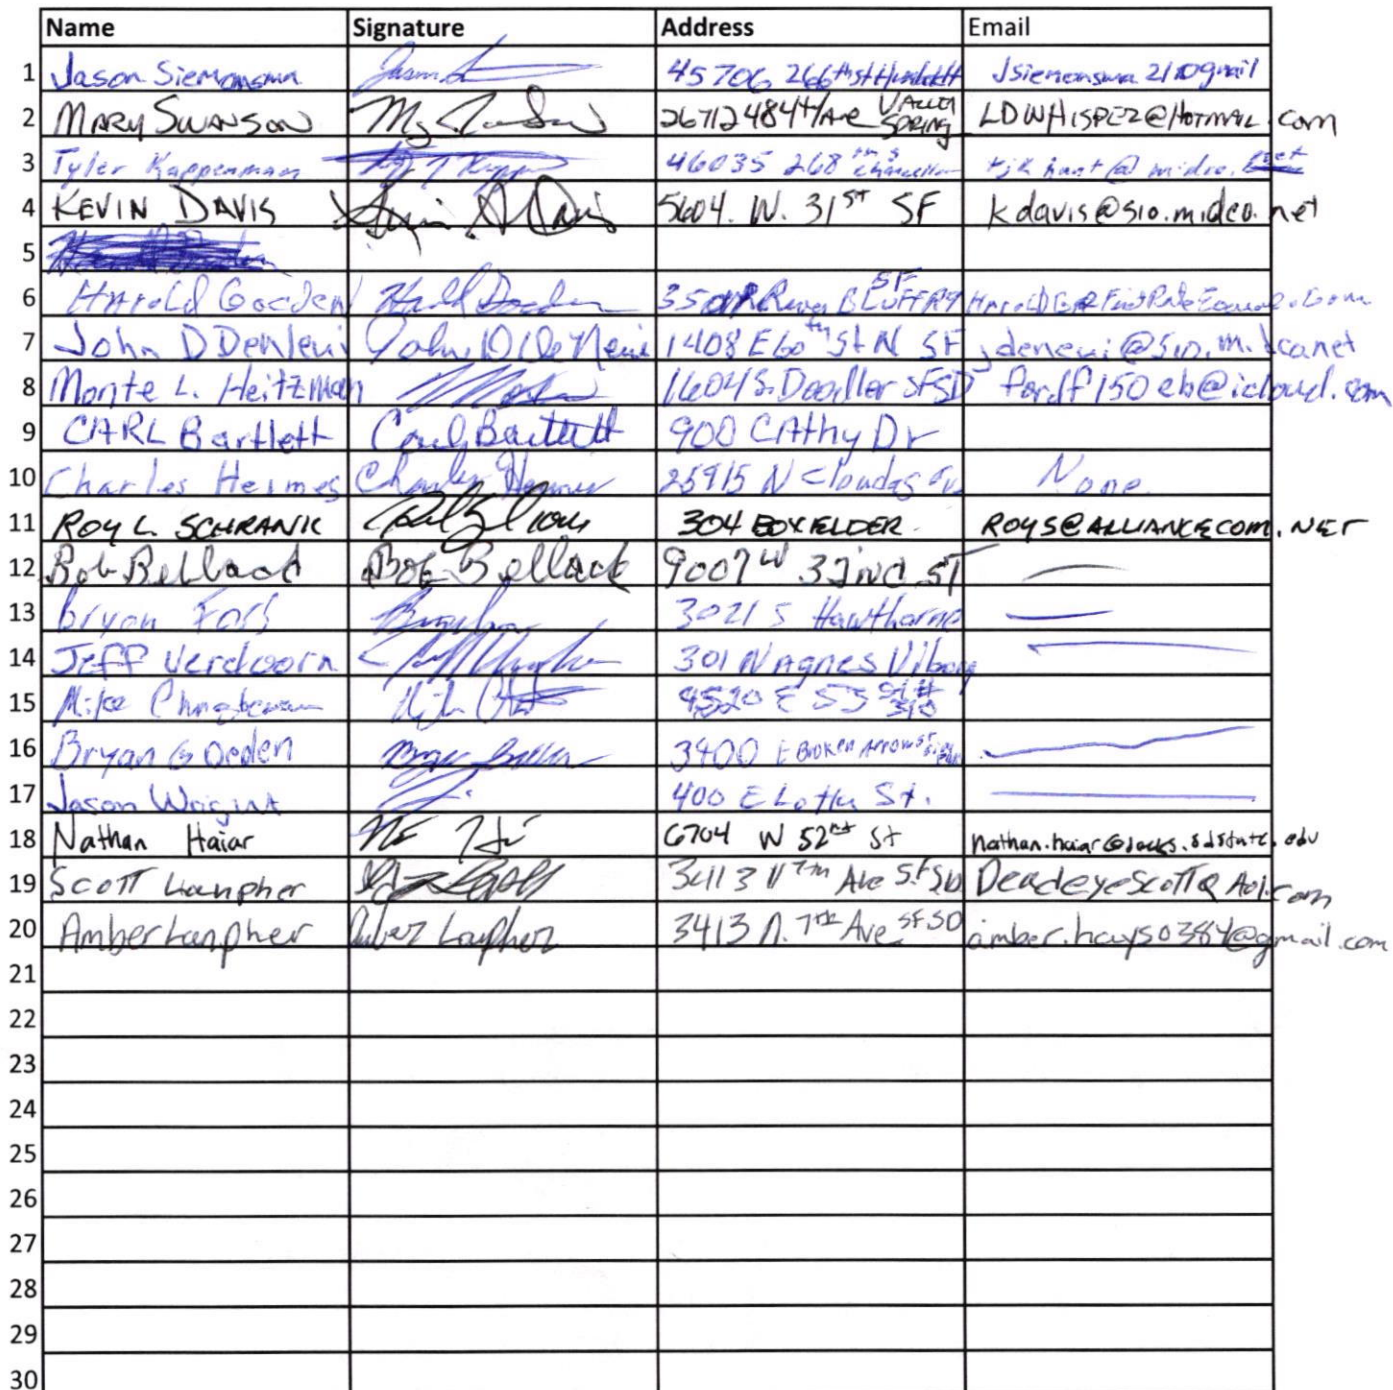 Name Signature Address Email
1 Jason Siemonsma 45706 266th st Jsiemonsma 21@gmail
2 MARY SWANSON 26712 484th Ave VALLEY SPRING LDWHISPEZ@HOTMAIL.com
3 Tyler Kappenman 46035 268th
4 KEVIN DAVIS 5604. W. 31ST SF kdavis@sio.midco.net
5
6 Harold SF River BLUFF
7 John D 1408 E 60th St N SF jdeneui@sio.midcanet
8 Monte L. Heitzman 1604 S. SFSD fordf150eb@icloud.com
9 CARL Bartlett Carl Bartlett 900 CAthy Dr
10 Charles Hermes Charles 25915 N None
11 ROY L. SCHRANK 304 BOXELDER ROYS@ALLIANCECOM.NET
12 Bob Bellack Bob Bellack 9007 W 32ND ST
13 bryon 3021 S Hawthorne
14 Jeff Verdoorn 301 N Agnes Viborg
15 Mike E
16 Bryan Goeden 3400 E BROKEN ARROW
17 Jason Wright 400 E St.
18 Nathan Haiar 6704 W 52nd St nathan.haiar@jacks.sdstate.edu
19 SCOTT Lanpher 3413 N 7th Ave SFSD DeadeyeScott@Aol.com
20 Amber Lanpher Amber Lanpher 3413 N. 7th Ave SFSD amber.hays0384@gmail.com
21
22
23
24
25
26
27
28
29
30